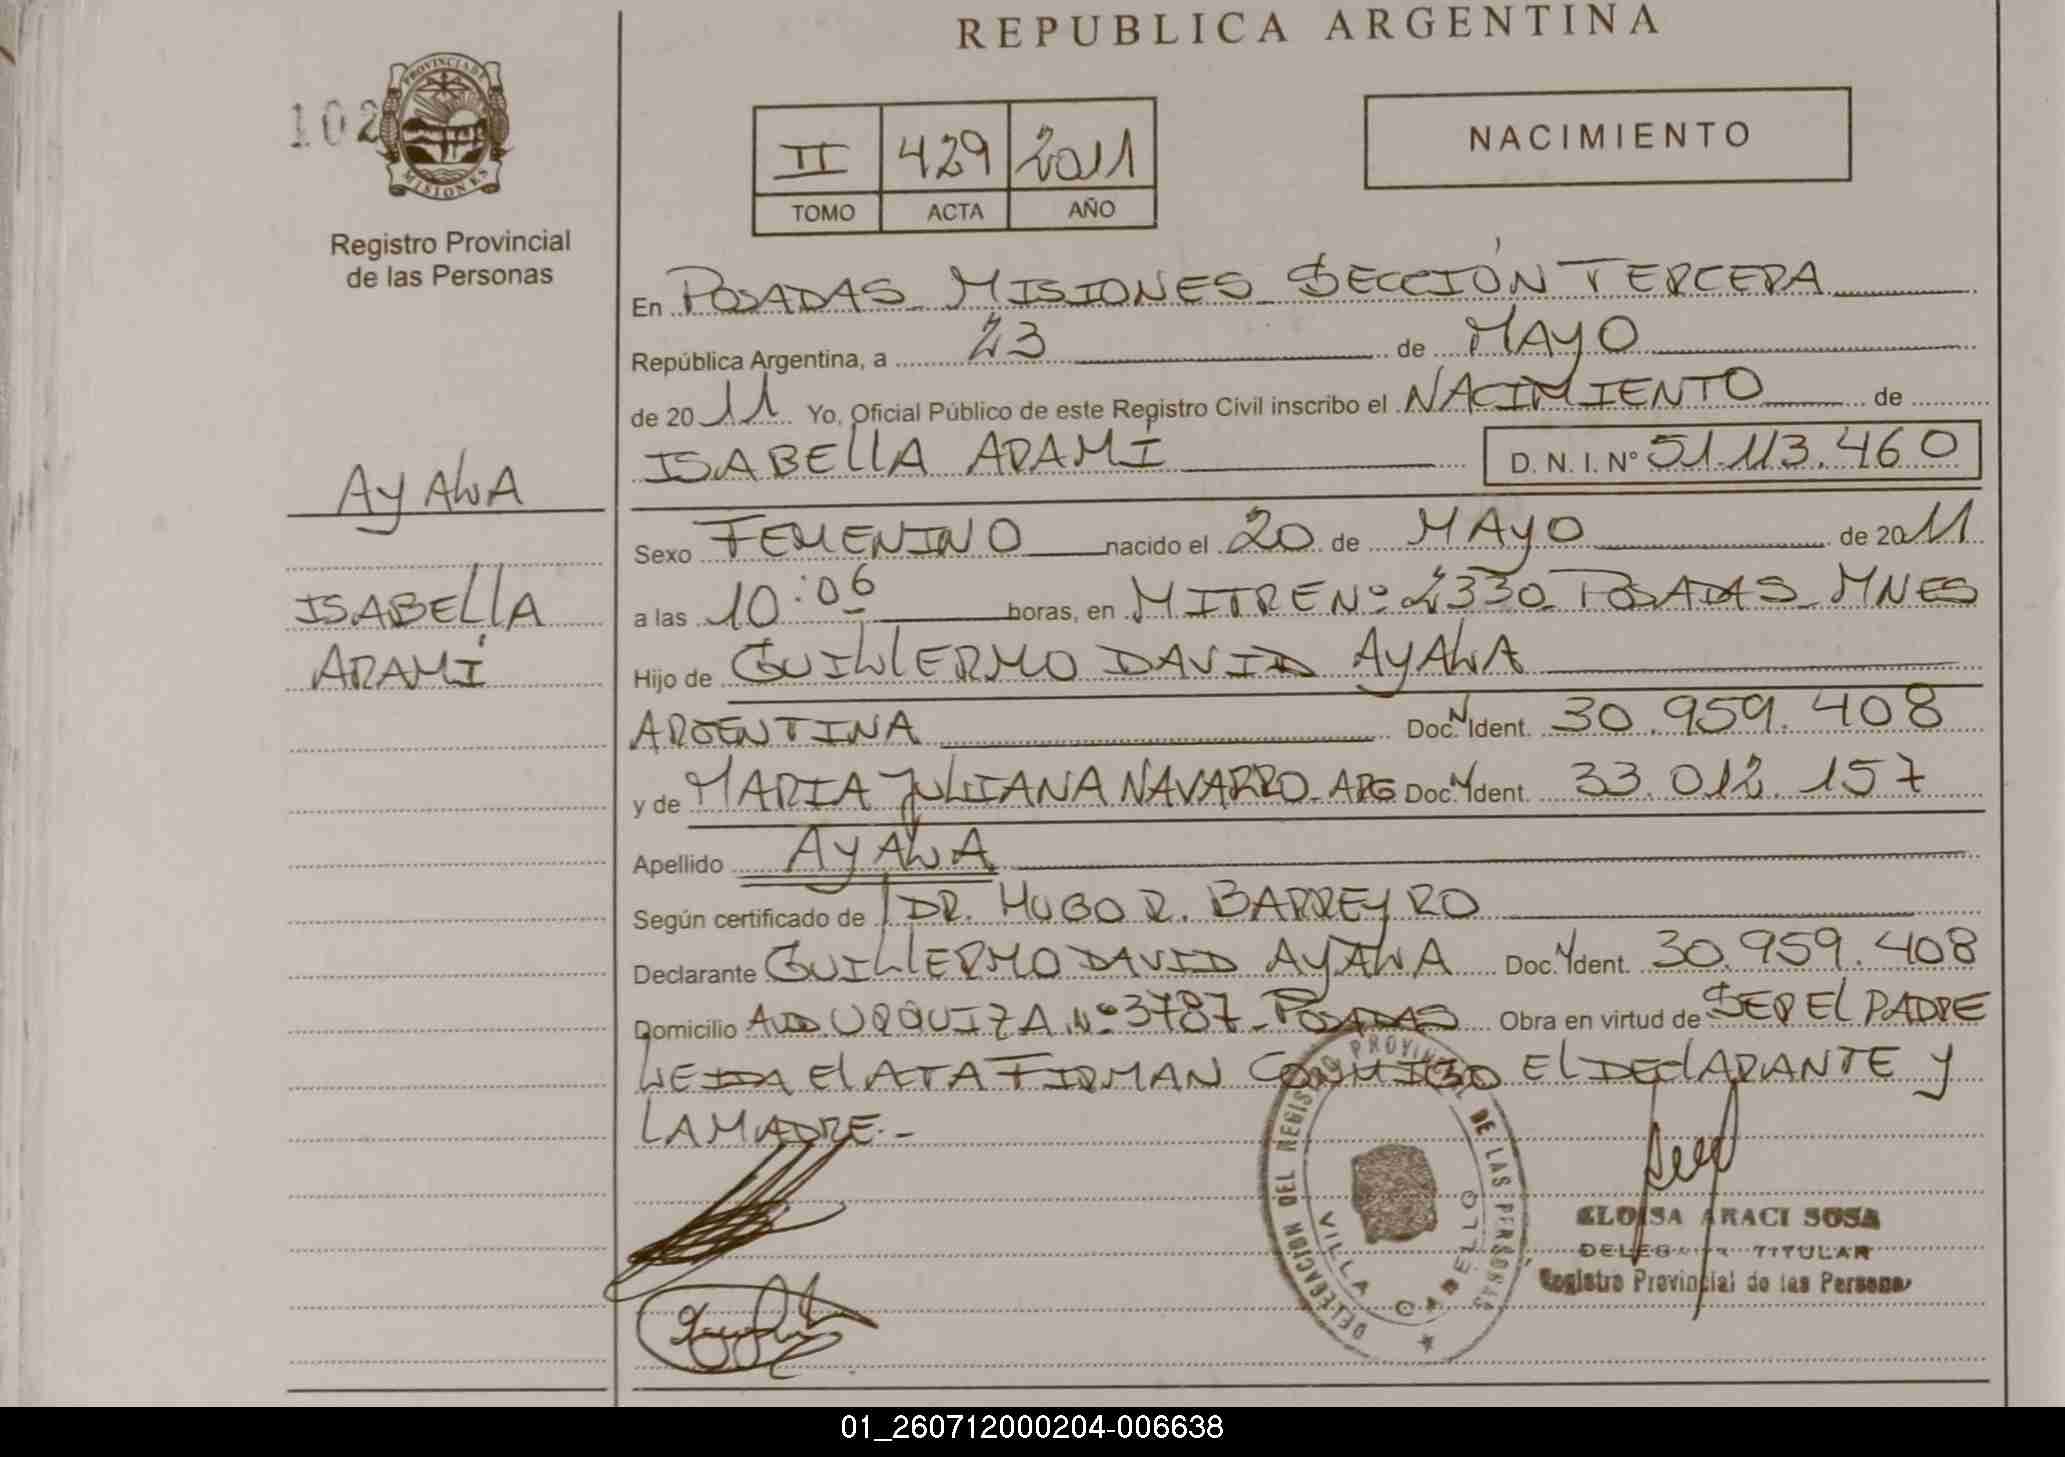 REPUBLICA ARGENTINA
102
PROVINCIA DE
MISIONES
Registro Provincial
de las Personas
II 429 2011
TOMO ACTA AÑO
NACIMIENTO
En POSADAS MISIONES SECCIÓN TERCERA
República Argentina, a 23 de MAYO
de 2011 Yo, Oficial Público de este Registro Civil inscribo el NACIMIENTO de
ISABELLA ARAMÍ D.N.I. Nº 51.113.460
AYALA
ISABELLA
ARAMÍ
Sexo FEMENINO nacido el 20 de MAYO de 2011
a las 10:06 horas, en MITRE Nº 2330 POSADAS MNES
Hijo de GUILLERMO DAVID AYALA
ARGENTINA Doc. N Ident. 30.959.408
y de MARIA JULIANA NAVARRO - ARG Doc. N Ident. 33.012.157
Apellido AYALA
Según certificado de DR. HUGO R. BARREYRO
Declarante GUILLERMO DAVID AYALA Doc. N Ident. 30.959.408
Domicilio AVD URQUIZA Nº 3787 - POSADAS Obra en virtud de SER EL PADRE
LEIDA El ATA FIRMAN CONMIGO El DEClARANTE Y
LA MADRE.-
DELEGACION DEL REGISTRO PROVINCIAL DE LAS PERSONAS
VILLA CABELLO
ELOISA ARACI SOSA
TITULAR
Registro Provincial de las Personas
01_260712000204-006638